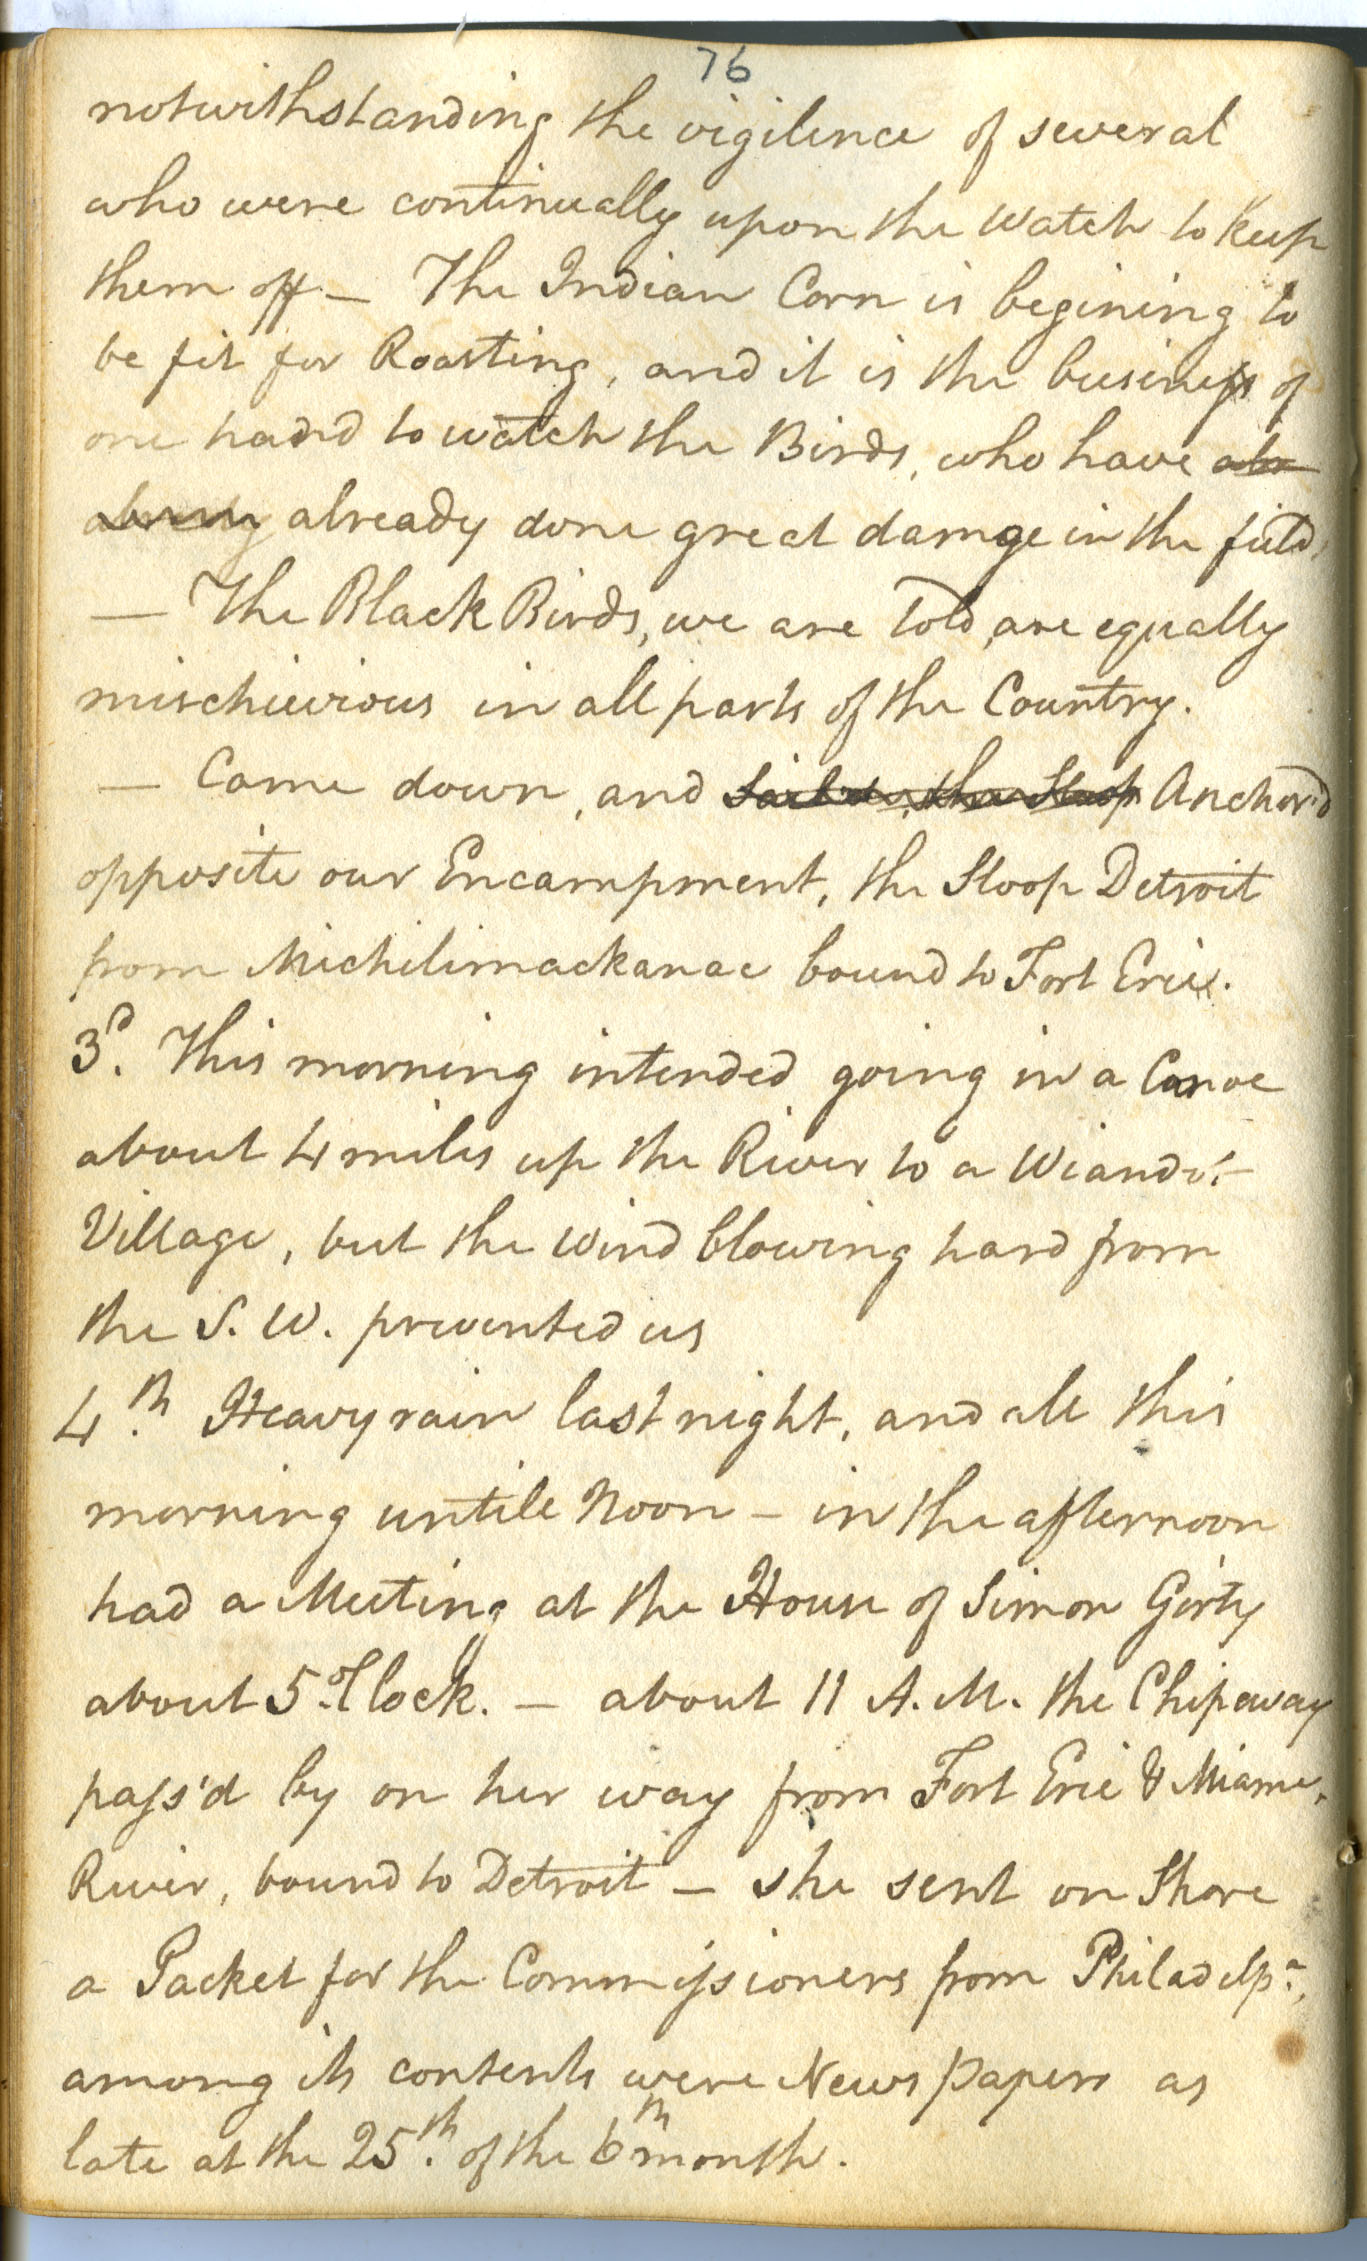 76
notwithstanding the vigilence of several
who were continually upon the Watch to keep
them off — The Indian Corn is begining to
be fit for Roasting, and it is the business of
one hadnd to watch the Birds, who have alr
already done great damge in the field,
— The Black Birds, we are told, are equally
mischievious in all parts of the Country.
— Came down, and Sailed, the Sloop Anchor'd
opposite our Encampment, the Sloop Detroit
from Michilimackanac bound to Fort Erie.
3d. This morning intended going in a Canoe
about 4 miles up the River to a Wiandot
Village, but the wind blowing hard from
the S. W. prevented us
4th. Heavy rain last night, and all this
morning untile Noon — in the afternoon
had a Meeting at the House of Simon Girty
about 5 o'Clock. — about 11 A.M. the Chipaway
pass'd by on her way from Fort Erie & Miame,
River, bound to Detroit — she sent on Shore
a Packet for the Commissioners from Philadelpa,
among its contents were News papers as
late at the 25th. of the 6th month.